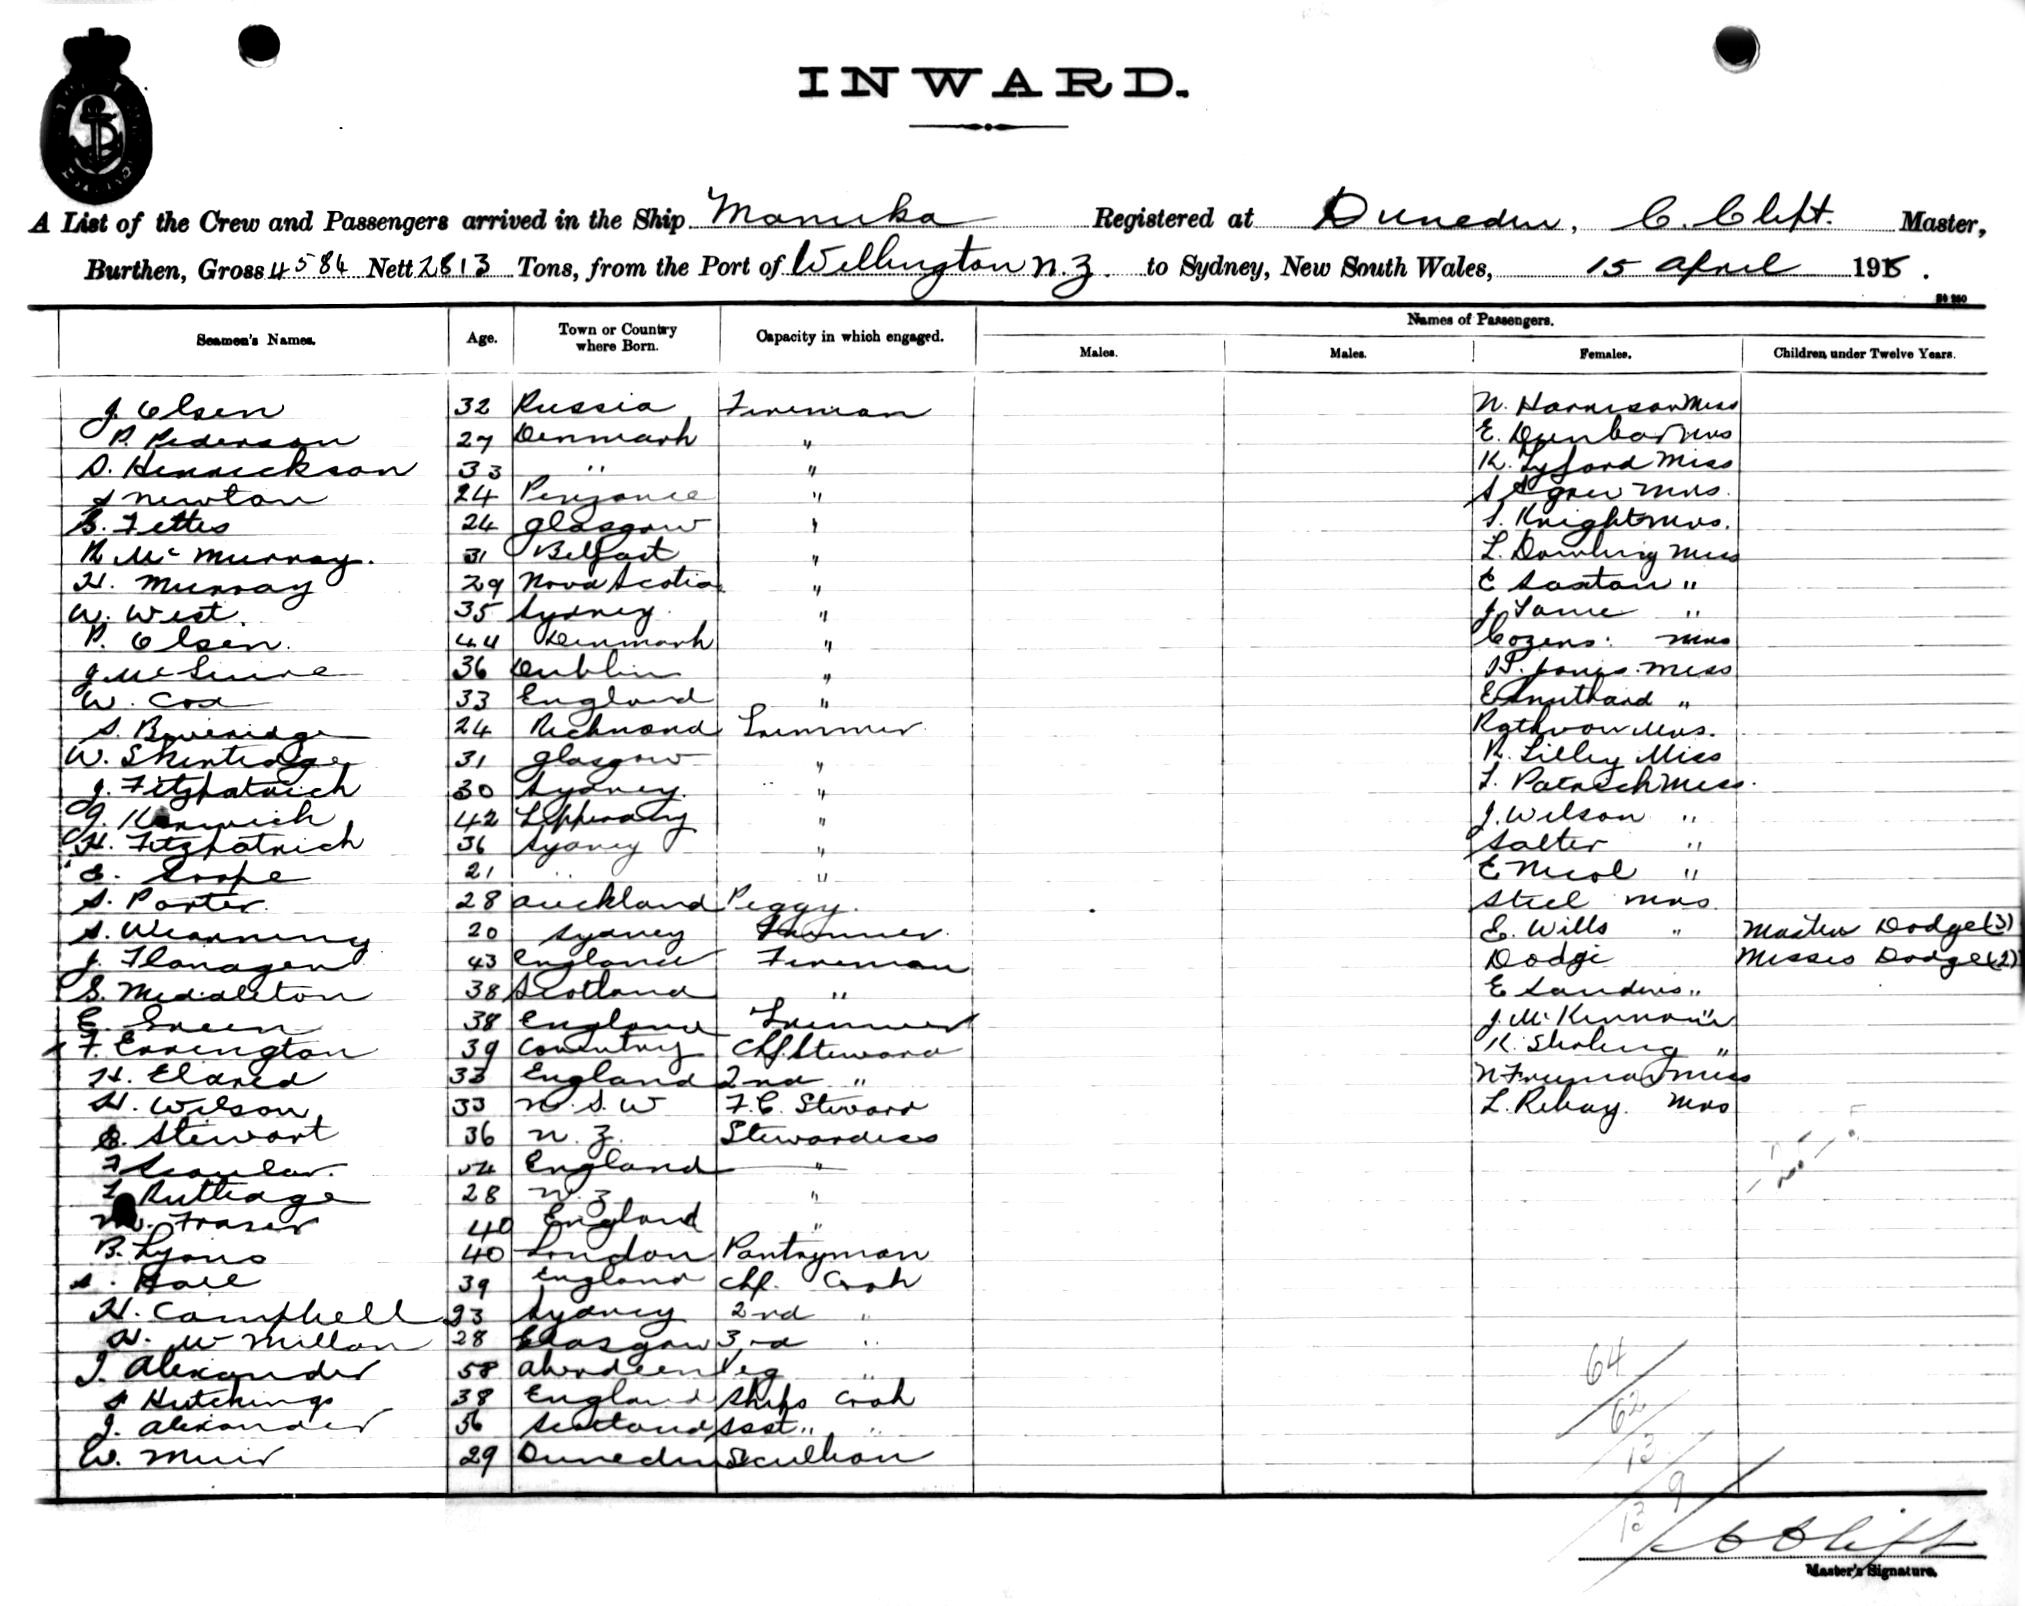 INWARD.
A List of the Crew and Passengers arrived in the Ship Manuka Registered at Dunedin, C. Clift. Master,
Burthen, Gross 4584 Nett 2813 Tons, from the Port of Wellington N.Z. to Sydney, New South Wales, 15 April 1915.
Names of Passengers.
Seamen's Names. Age. Town or Country where Born. Capacity in which engaged. Males. Males. Females. Children under Twelve Years.
J. Olsen 32 Russia Fireman N. Harrison Miss
P. Pederson 27 Denmark " E. Dunbar Mrs
S. Henrickson 33 " " K. Lyford Miss
S Newton 24 Penzance " Mrs.
G. Fettes 24 Glasgow " Knight Mrs.
R McMurray. 31 Belfast " L. Dowling Miss
H. Murray 29 Nova Scotia " E Saxton "
W. West. 35 Sydney. " J "
P. Olsen. 44 Denmark " Cozens. Mrs
J 36 Dublin " Jones. Miss
W. Cox 33 England " "
S. Beveridge 24 Richmond Trimmer Mrs.
W. 31 Glasgow " R. Lilley Miss
J. Fitzpatrick 30 Sydney. " Miss.
J. 42 Tipperary " J. Wilson "
H. Fitzpatrick 36 Sydney " Salter "
21 " " E Nicol "
S. Porter. 28 Auckland Peggy. Steel Mrs.
S. 20 Sydney Trimmer. E. Wills " Master Dodge (3)
J. Flanagan 43 England Fireman Dodge Misses Dodge (2)
S. Middleton 38 Scotland " E Sanders "
E. Green 38 England Trimmer J. McKinnon "
F. Errington 39 Coventry Chf. Steward K. Stirling "
H. Eldred 33 England 2nd " N Freeman Miss
H. Wilson 33 N.S.W F.C. Steward L. Mrs
Stewart 36 N.Z. Stewardess
F Scoular. England "
Rutledge 28 N.Z "
M. Fraser 40 England "
B. Lyons 40 London Pantryman
39 England Chf. Cook
H. Campbell 23 Sydney 2nd "
McMillan 28 Glasgow 3rd "
J. Alexander 58 Aberdeen Veg "
S Hutchings 38 England Ships Cook
J. Alexander 56 Scotland Asst " "
W. Muir 29 Dunedin Scullion
64
62
13
9
C Clift
Master's Signature.